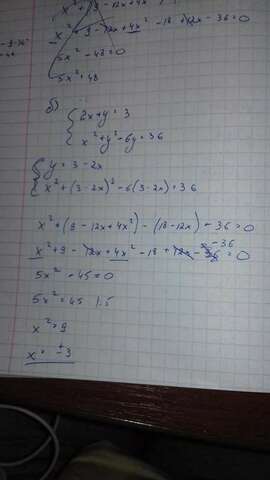 x² + 9 - 12x + 4x² - 18 + 12x - 36 = 0
5x² - 48 = 0
5x² = 48
б) { 2x + y = 3
x² + y² - 6y = 36
{ y = 3 - 2x
x² + (3 - 2x)² - 6(3 - 2x) = 36
x² + (9 - 12x + 4x²) - (18 - 12x) - 36 = 0
x² + 9 - 12x + 4x² - 18 + 12x - 36 = 0
5x² - 45 = 0
5x² = 45 |:5
x² = 9
x = ±3